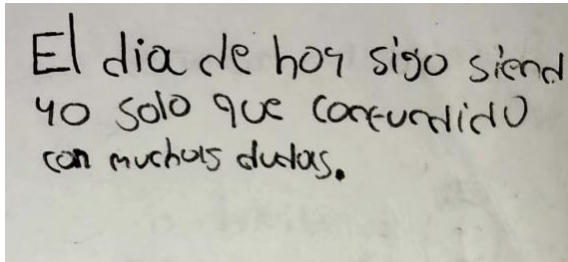 El dia de hoy sigo siend
yo solo que confundido
con muchas dudas.